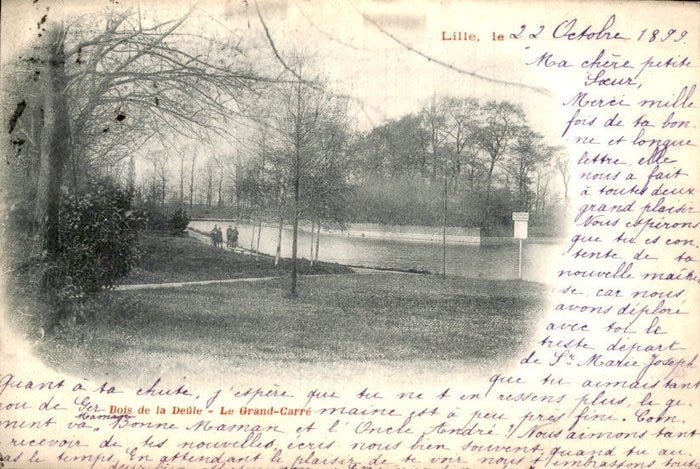 Lille, le 22 Octobre 1899
Ma chère petite
Sœur,
Merci mille
fois de ta bon
ne et longue
lettre, elle
nous a fait
à toutes deux
grand plaisir
Nous espérons
que tu es con
tente de ta
nouvelle maîtres
se, car nous
avons déploré
avec toi le
triste départ
de Sr Marie Joseph
que tu aimais tant
Quant à ta chute, j'espère que tu ne t'en ressens plus, le ge
nou de Germaine est à peu près fini. Com
Bois de la Deûle - Le Grand-Carré
ment va Bonne Maman et l'Oncle André? Nous aimons tant
recevoir de tes nouvelles, écris nous bien souvent, quand tu au
ras le temps. En attendant le plaisir de te voir nous t'embrassons